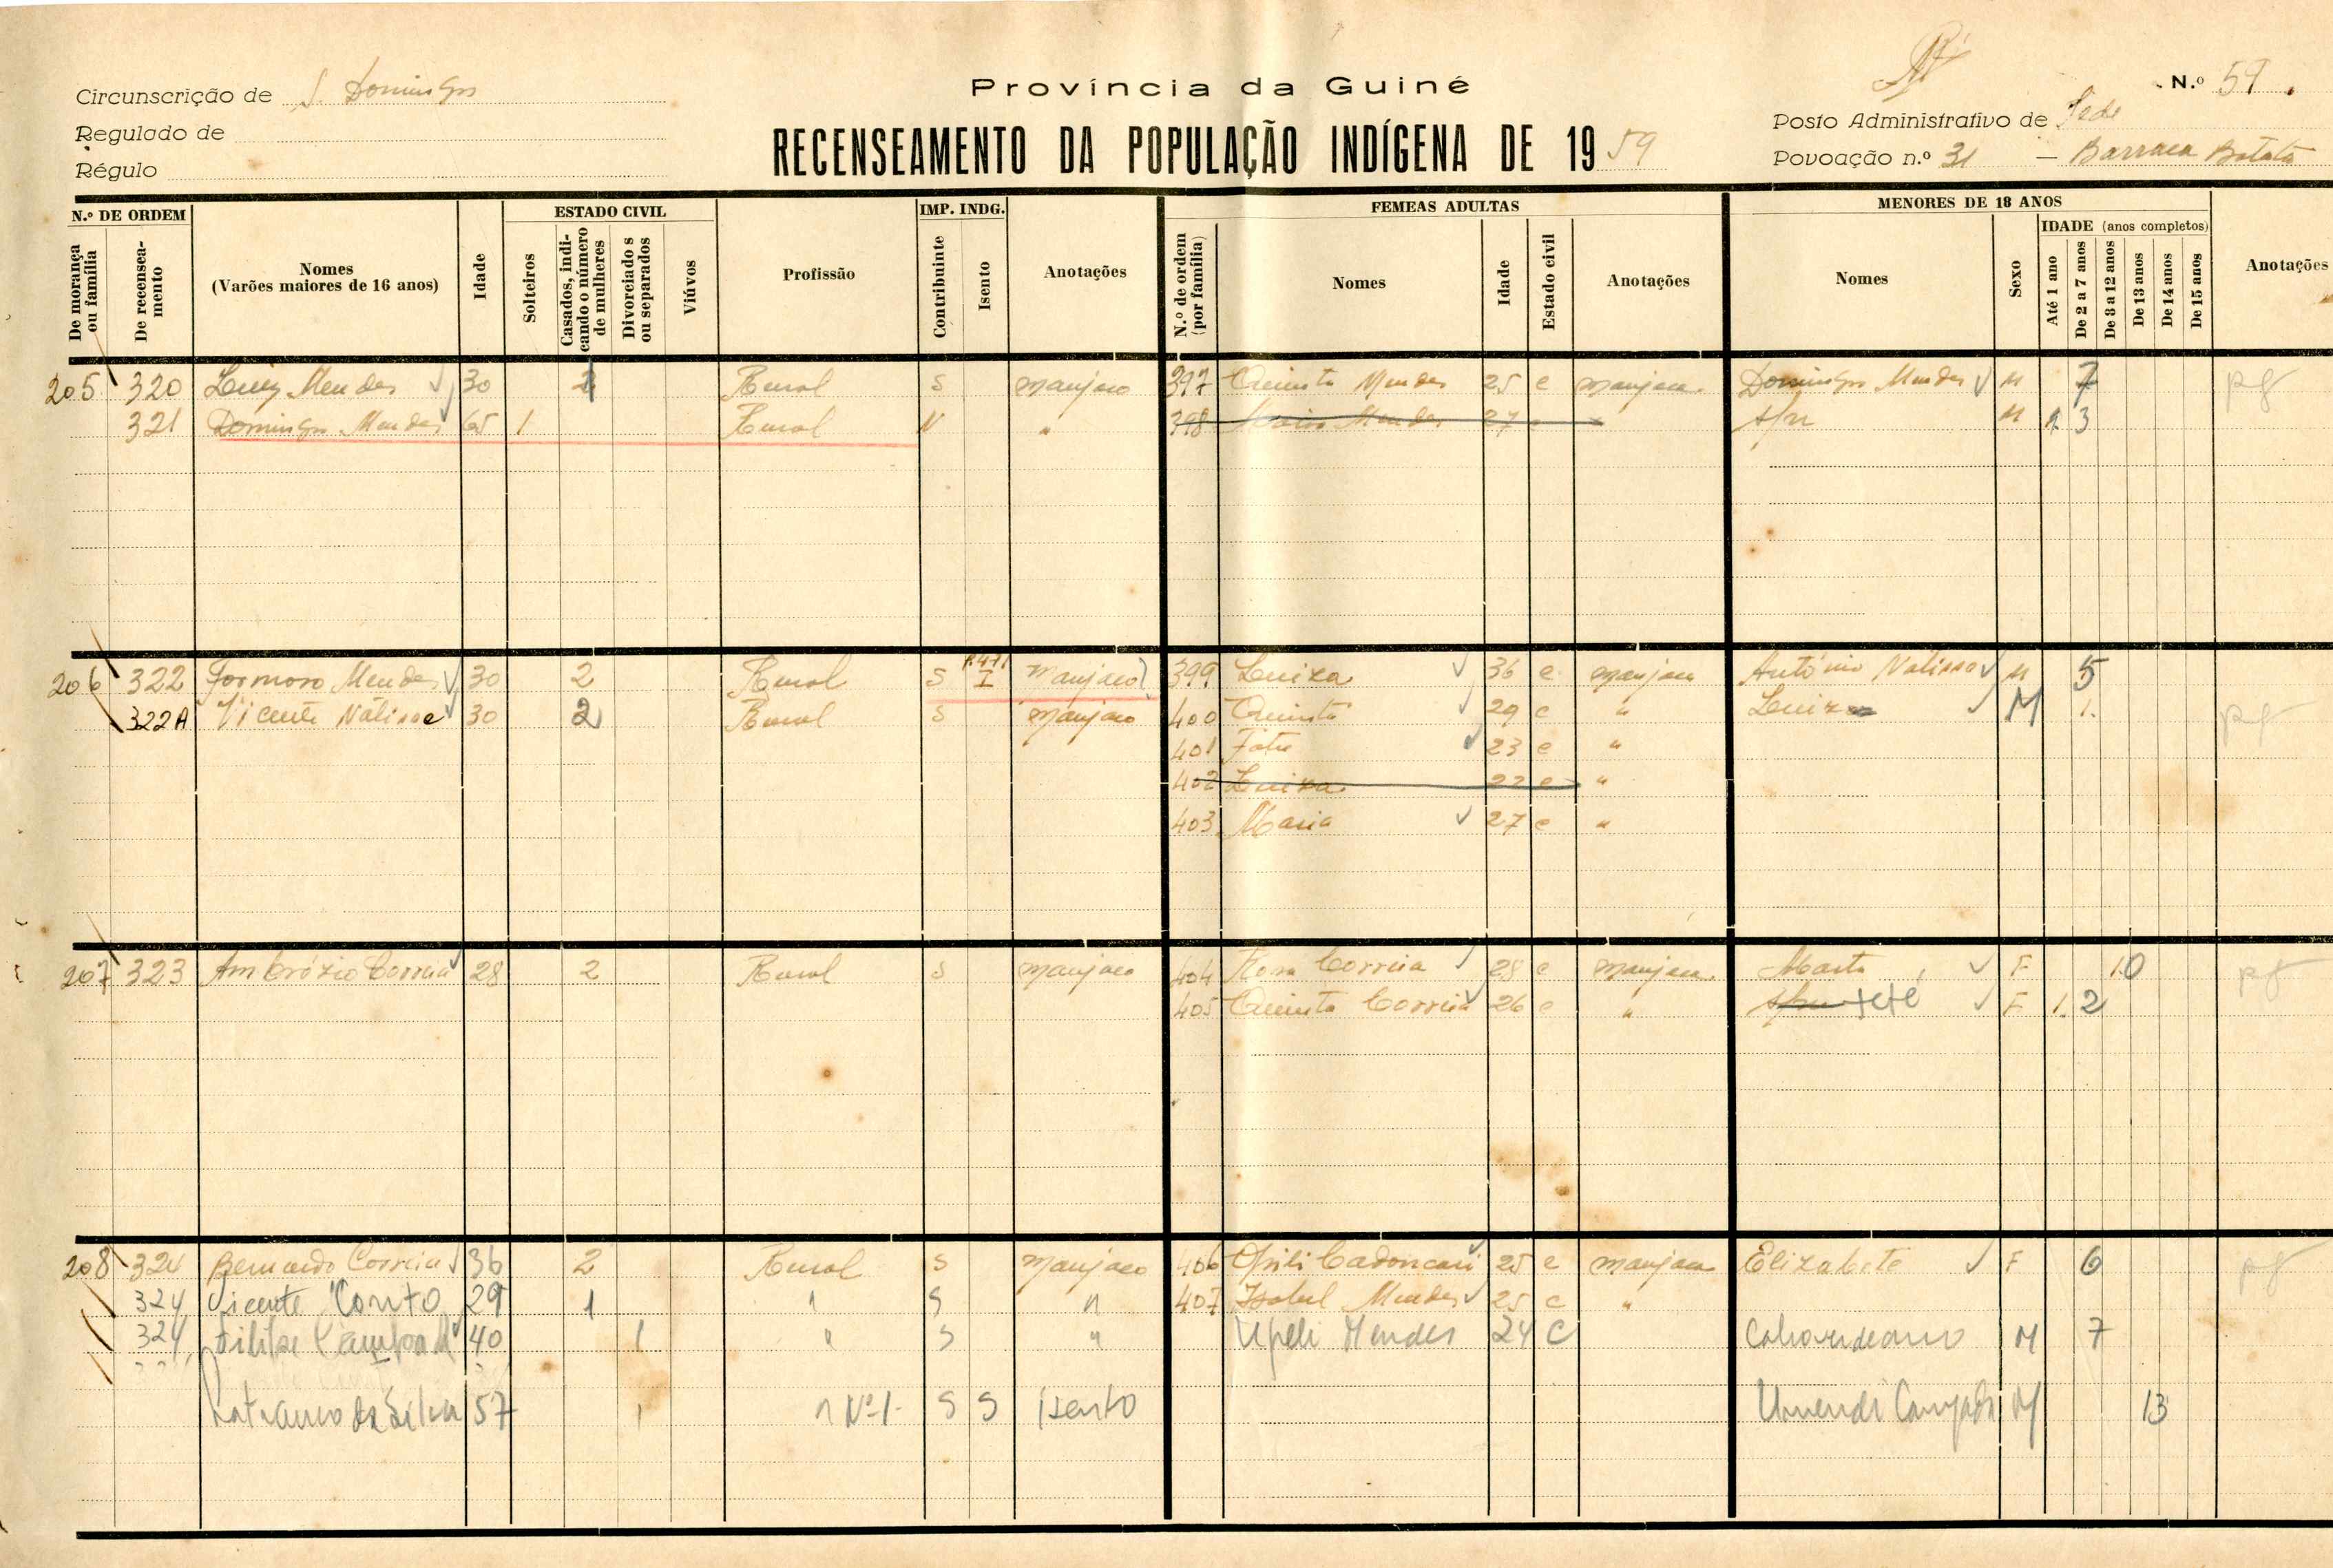 Província da Guiné
N.º 59
Circunscrição de S. Domingos
Posto Administrativo de Sede
Regulado de
RECENSEAMENTO DA POPULAÇÃO INDÍGENA DE 19 59
Povoação n.º 31 — Barraca Batata
Régulo
N.º DE ORDEM
De morança ou família
De recenseamento
Nomes
(Varões maiores de 16 anos)
Idade
ESTADO CIVIL
Solteiros
Casados, indicando o número de mulheres
Divorciados ou separados
Viúvos
Profissão
IMP. INDG.
Contribuinte
Isento
Anotações
FEMEAS ADULTAS
N.º de ordem (por família)
Nomes
Idade
Estado civil
Anotações
MENORES DE 18 ANOS
Nomes
Sexo
IDADE (anos completos)
Até 1 ano
De 2 a 7 anos
De 8 a 12 anos
De 13 anos
De 14 anos
De 15 anos
Anotações
205 320 Luiz Mendes 30 Rural S manjaco 397 Quinta Mendes 25 c manjaca Domingos Mendes M 7 pg
321 Domingos Mendes 65 1 Rural N " 398 Maria Mendes 27 s/n M 1 3
206 322 Formoso Mendes 30 2 Rural S I manjaco 399 Luiza 36 c manjaca António Nalissa M 5
322A Vicente Nalissae 30 2 Rural S manjaco 400 Quinta 29 c " Luiz M 1. pg
401 23 c "
402 Luiza 22 c "
403 Maria 27 c "
207 323 Ambrózio Correia 28 2 Rural S manjaco 404 Rosa Correia 28 c manjaca Marta F 10 pg
405 Quinta Correia 26 c " s/n teté F 1. 2
208 324 Bernardo Correia 36 2 Rural S manjaco 406 25 c manjaca Elizabete F 6 pg
324 Vicente Conto 29 1 " S " 407 Izabel Mendes 25 c "
324 40 1 " S " Upeli Mendes 24 C M 7
da Silva 57 1 " Nº 1 S S isento M 13